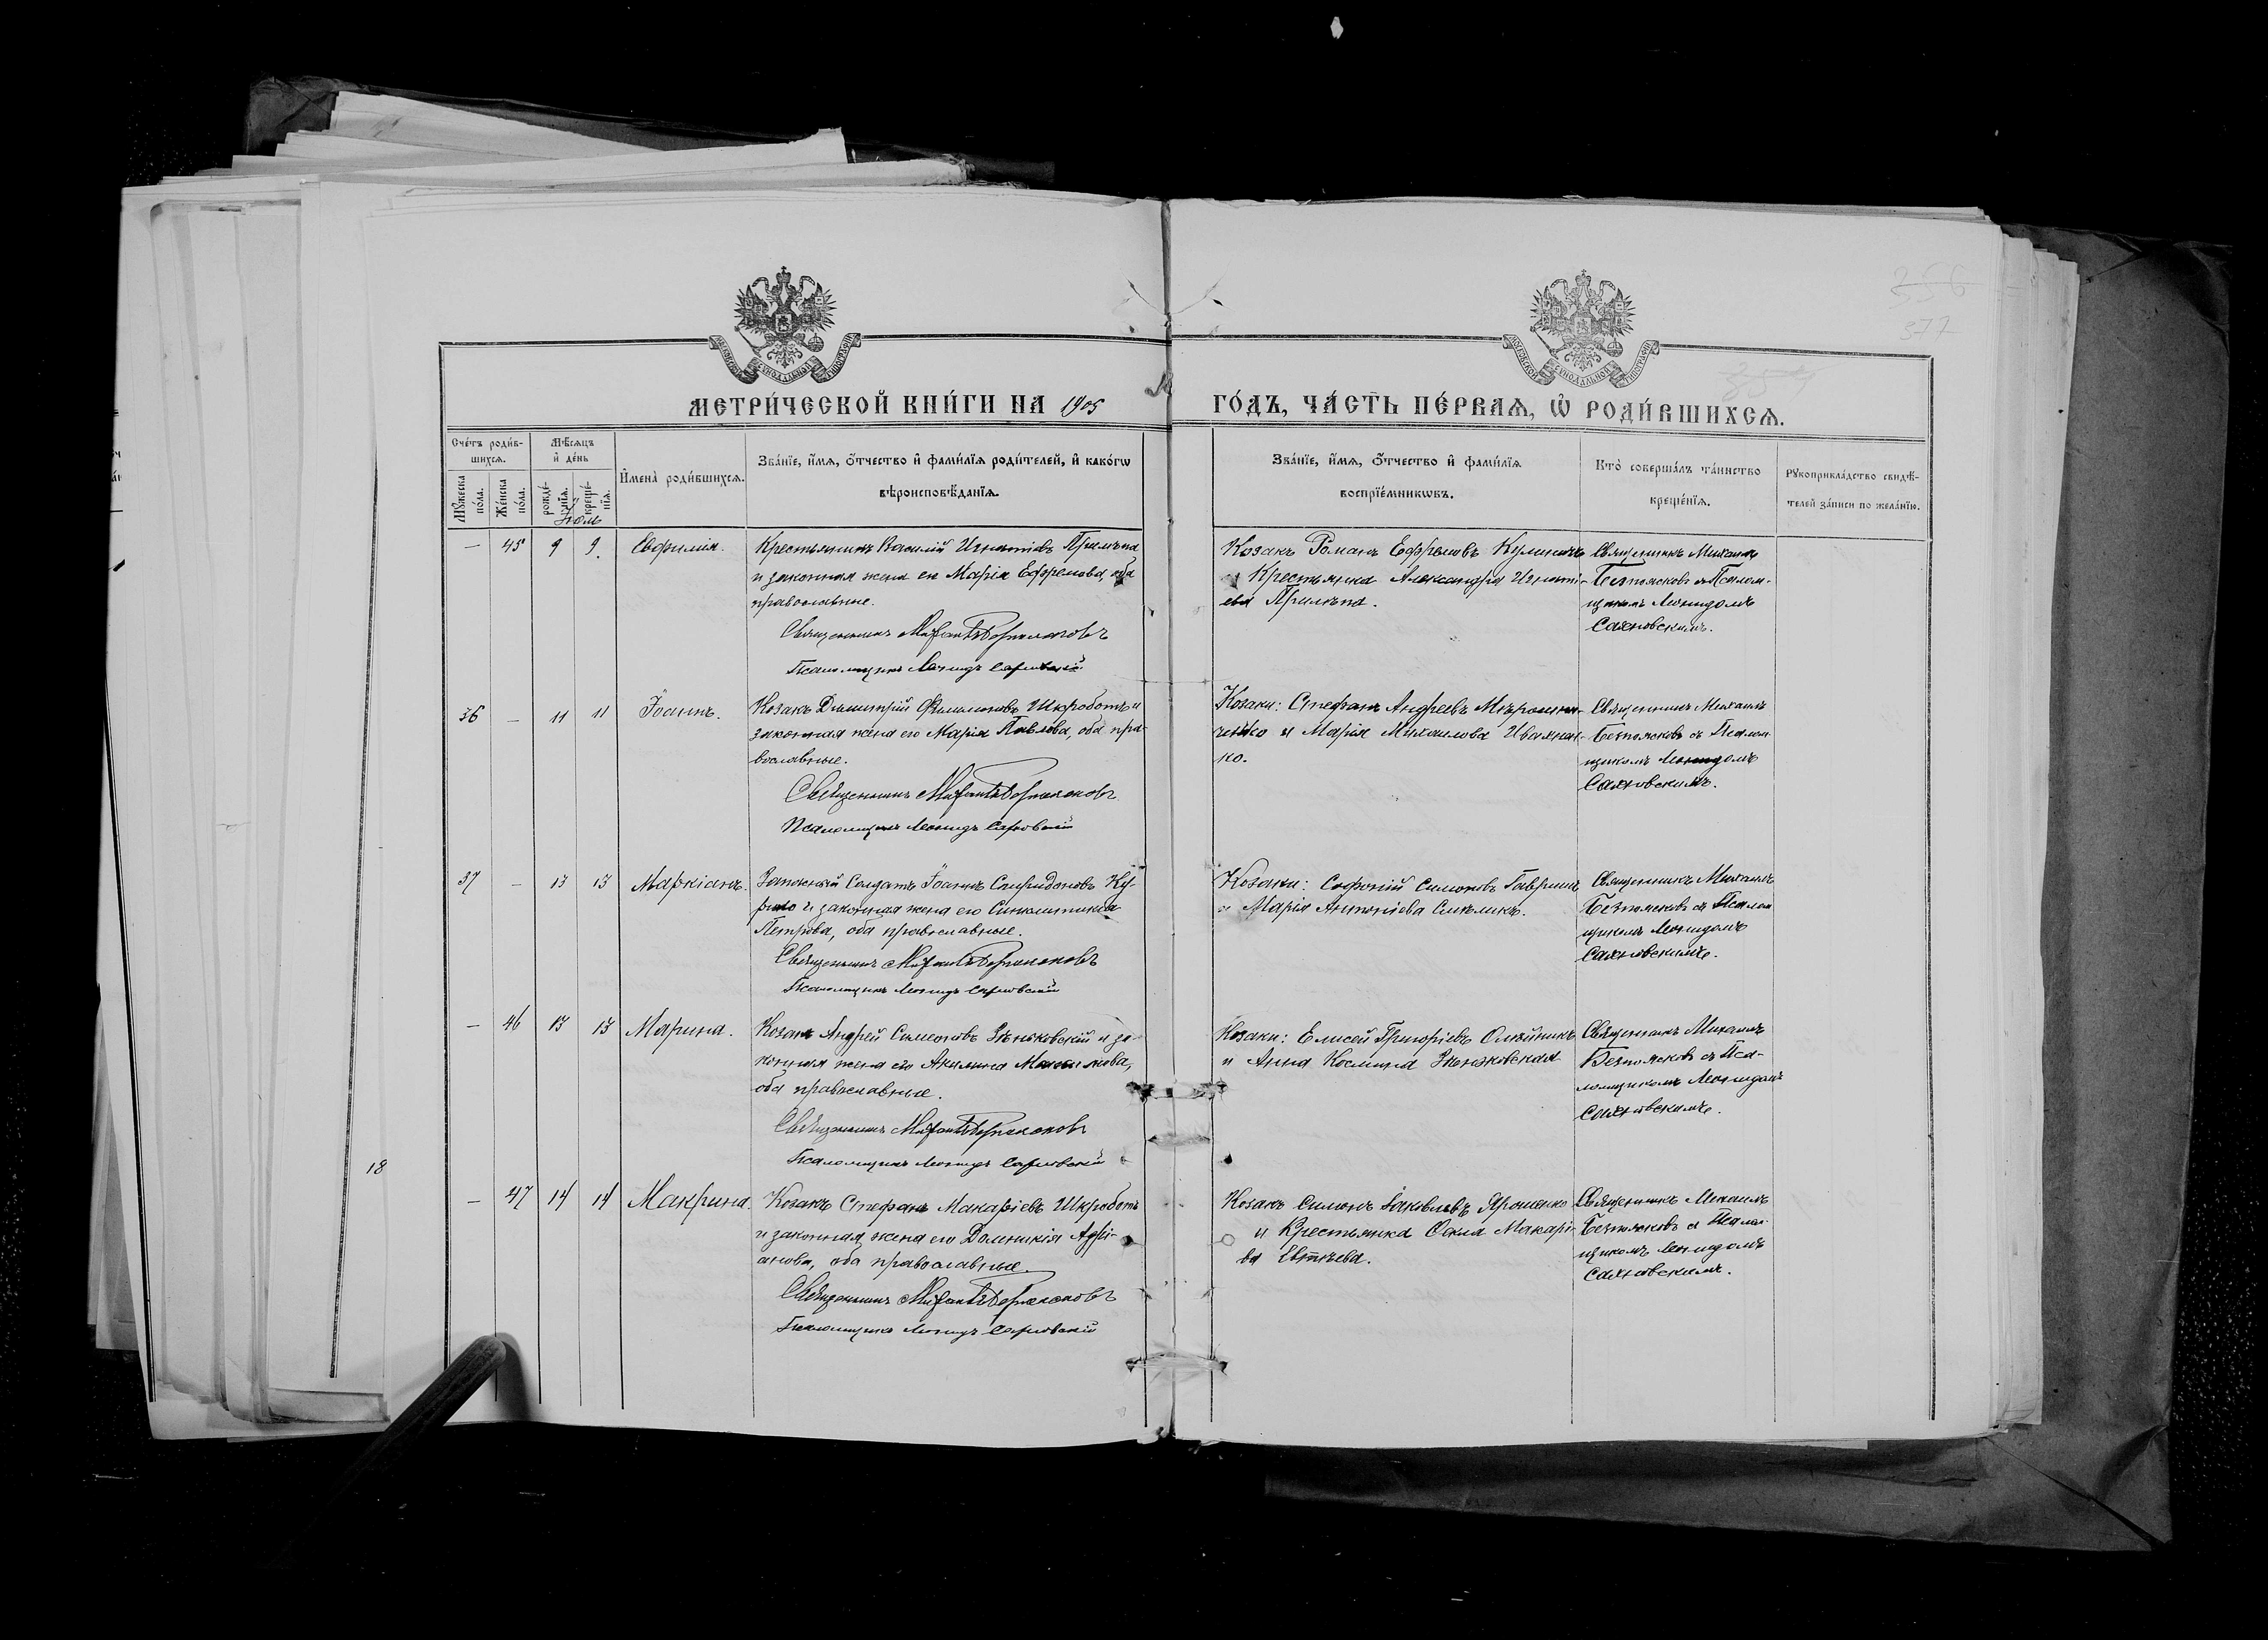 МЕТРИ́ЧЕСКОЙ КНИ́ГИ НА 1905 ГО́ДЪ, ЧА́СТЬ ПЕ́РВАѦ, Ѡ҆ РОДИ́ВШИХСѦ.
356
377
Сче́тъ роди́в-
шихсѧ.
Мѣ́сѧцъ
и҆ де́нь
Мꙋ́жеска
по́ла.
Же́нска
по́ла.
рожде́-
нїѧ.
креще́-
нїѧ.
И҆мена̀ роди́вшихсѧ.
Зва́нїе, и҆́мѧ, ѻ҆́тчество и҆ фами́лїѧ роди́телей, и҆ како́гѡ
вѣроисповѣ́данїѧ.
Зва́нїе, и҆́мѧ, ѻ҆́тчество и҆ фами́лїѧ
воспрїе́мникѡвъ.
Кто̀ соверша́лъ та́инство
креще́нїѧ.
Рꙋкоприкла́дство свидѣ́-
телей за́писи по жела́нїю.
Іюль
— 45 9 9. Евфимія.
Крестьянинъ Василій Игнатіевъ Прилѣпа
и законная жена ею Марія Ефремова, оба
православные.
Священникъ Михаилъ
Псаломщикъ Леонидъ
Козакъ Романъ Ефремовъ
и Крестьянка Александра Игнаті-
ева Прилѣпа.
Священникъ Михаилъ
съ Псалом-
щикомъ Леонидомъ
36 — 11 11 Іоаннъ.
Козакъ Димитрій Филимоновъ Шкроботъ и
законная жена его Марія Павлова, оба пра-
вославные.
Священникъ Михаилъ
Псаломщикъ Леонидъ
Козаки: Стефанъ Андреевъ Мирошни-
ченко и Марія Михаилова Ивахнен-
ко.
Священникъ Михаилъ
съ Псалом
щикомъ Леонидомъ
37 — 13 13 Маркіанъ.
Запасный Солдатъ Іоаннъ Спиридоновъ Ку-
и законная жена его Синклитикія
Петрова, оба православные.
Священникъ Михаилъ
Псаломщикъ Леонидъ
Козаки: Софоній Симоновъ Гавришъ
и Марія Антоніева
Священникъ Михаилъ
съ Псалом
щикомъ Леонидомъ
— 46 13 13 Марина.
Козакъ Андрей Симоновъ Зѣньковскій и за-
конная жена его Акилина
оба православные.
Священникъ Михаилъ
Псаломщикъ Леонидъ
Козаки: Елисей Григоріевъ Олейникъ
и Анна Космина Зѣньковская
Священникъ Михаилъ
съ Пса-
ломщикомъ Леонидомъ
18
— 47 14 14 Макрина.
Козакъ Стефанъ Макаріевъ Шкроботъ
и законная жена его Домникія Адрі-
анова, оба православные.
Священникъ Михаилъ
Псаломщикъ Леонидъ
Козакъ Симонъ Іаковлевъ Ярошенко
и Крестьянка Ѳекла Макаріе-
ва
Священникъ Михаилъ
съ Псалом-
щикомъ Леонидомъ